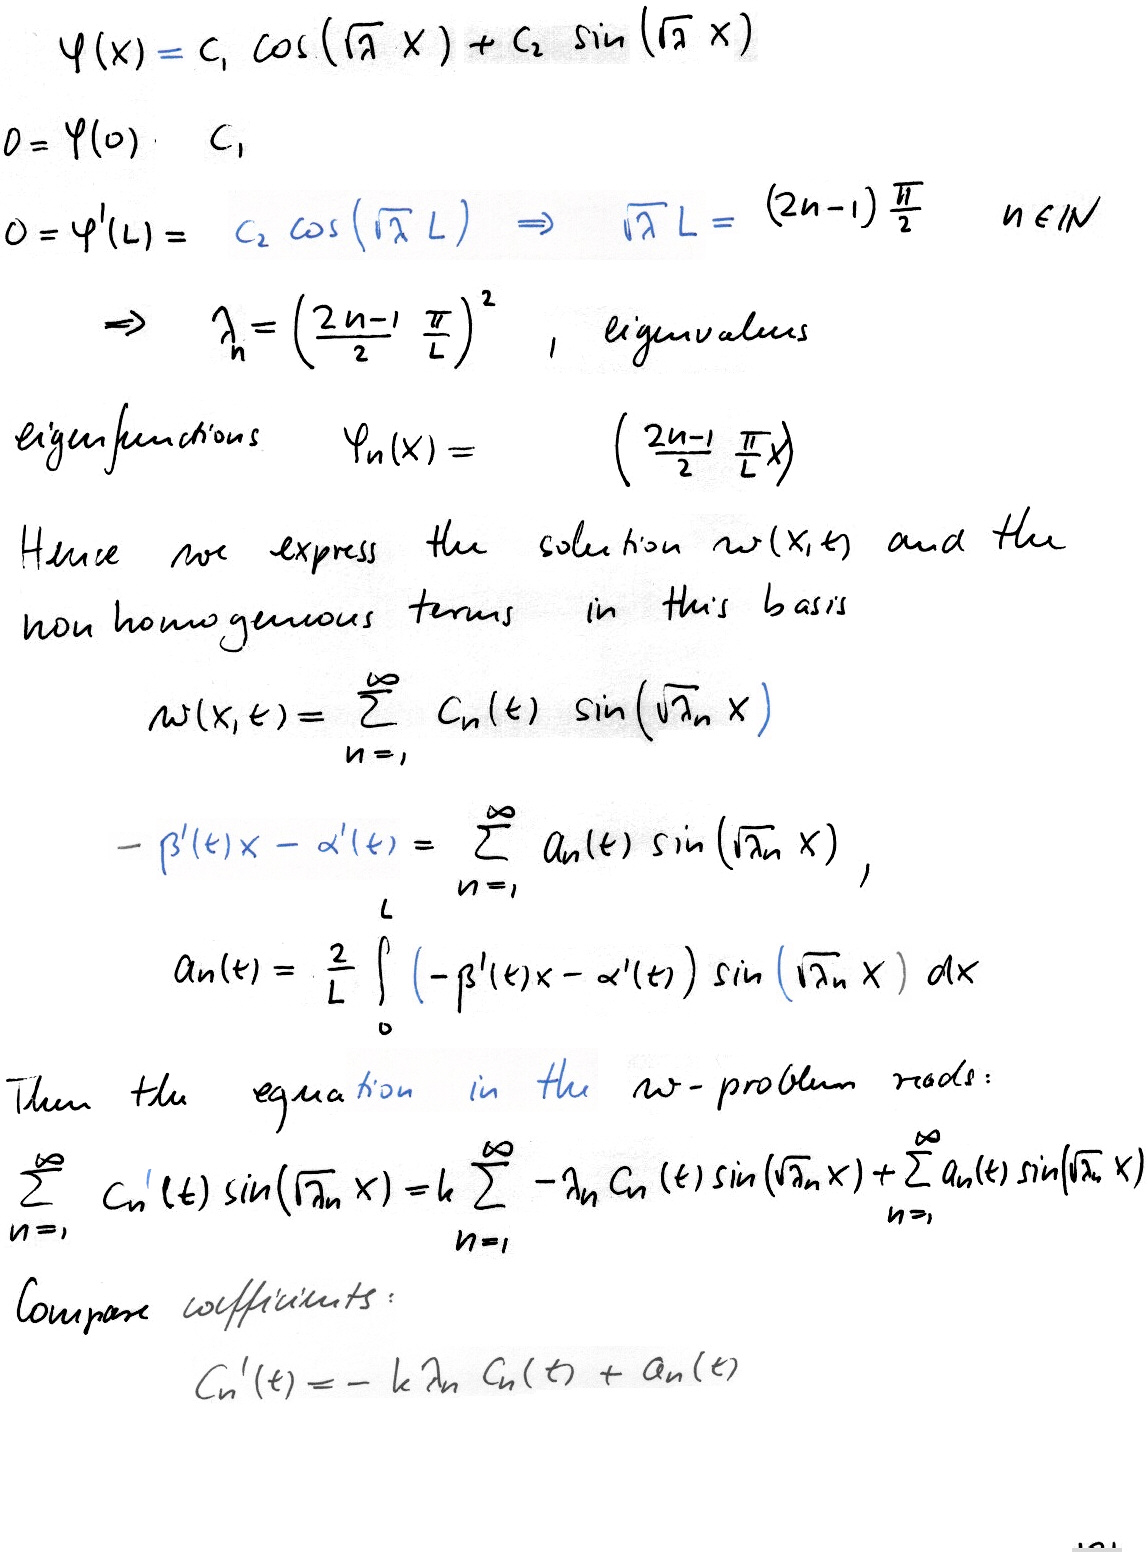 φ(x) = c₁ cos(√λ x) + c₂ sin(√λ x)
0 = φ(0) · c₁
0 = φ'(L) = c₂ cos(√λ L) ⇒ √λ L = (2n-1) π/2 n ∈ ℕ
⇒ λₙ = ((2n-1)/2 π/L)² , eigenvalues
eigenfunctions φₙ(x) = ((2n-1)/2 π/L x)
Hence we express the solution w(x,t) and the
non homogeneous terms in this basis
w(x,t) = ∑_{n=1}^{∞} cₙ(t) sin(√λₙ x)
- β'(t)x - α'(t) = ∑_{n=1}^{∞} aₙ(t) sin(√λₙ x) ,
aₙ(t) = 2/L ∫₀ᴸ (-β'(t)x - α'(t)) sin(√λₙ x) dx
Then the equation in the w-problem reads:
∑_{n=1}^{∞} cₙ'(t) sin(√λₙ x) = k ∑_{n=1}^{∞} -λₙ cₙ(t) sin(√λₙ x) + ∑_{n=1}^{∞} aₙ(t) sin(√λₙ x)
Compare coefficients:
cₙ'(t) = - k λₙ cₙ(t) + aₙ(t)